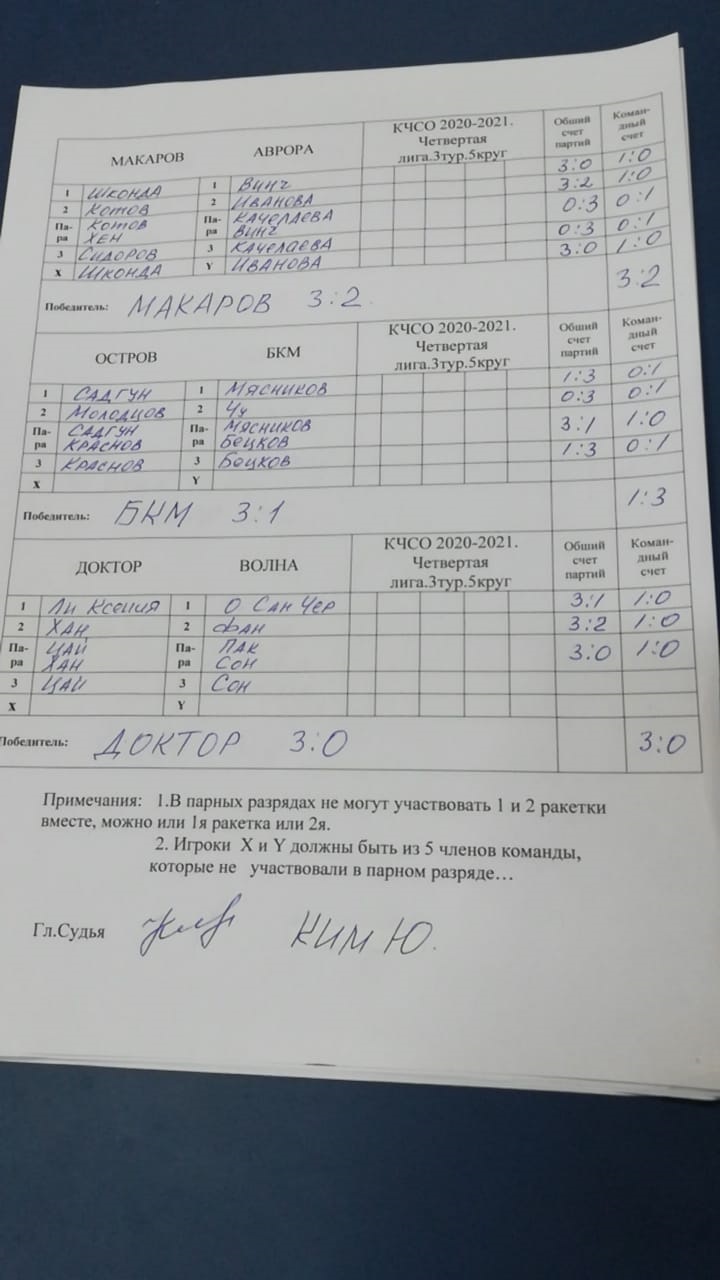 МАКАРОВ АВРОРА КЧСО 2020-2021. Четвертая лига.3тур.5круг Общий счет партий Коман-дный счет
1 Шконда 1 Винч 3:0 1:0
2 Котов 2 Иванова 3:2 1:0
Па-ра Котов Па-ра Качелаева 0:3 0:1
Хен Винч
3 Сидоров 3 Качелаева 0:3 0:1
X Шконда Y Иванова 3:0 1:0
Победитель: МАКАРОВ 3:2 3:2
ОСТРОВ БКМ КЧСО 2020-2021. Четвертая лига.3тур.5круг Общий счет партий Коман-дный счет
1 Садгун 1 Мясников 1:3 0:1
2 Молодцов 2 Чу 0:3 0:1
Па-ра Садгун Па-ра Мясников 3:1 1:0
Краснов Бецков
3 Краснов 3 Бецков 1:3 0:1
X Y
Победитель: БКМ 3:1 1:3
ДОКТОР ВОЛНА КЧСО 2020-2021. Четвертая лига.3тур.5круг Общий счет партий Коман-дный счет
1 Ли Ксения 1 О Сан Чер 3:1 1:0
2 Хан 2 Фан 3:2 1:0
Па-ра Цай Па-ра Пак 3:0 1:0
Хан Сон
3 Цай 3 Сон
X Y
Победитель: ДОКТОР 3:0 3:0
Примечания: 1.В парных разрядах не могут участвовать 1 и 2 ракетки
вместе, можно или 1я ракетка или 2я.
2. Игроки X и Y должны быть из 5 членов команды,
которые не участвовали в парном разряде…
Гл.Судья КИМ Ю.